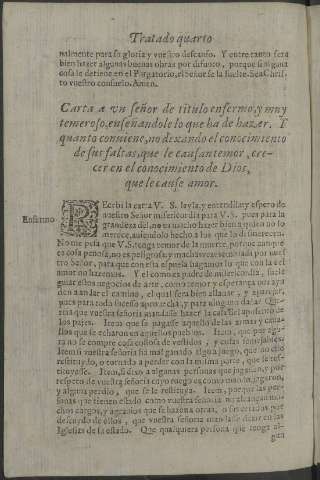 Tratado quarto
nalmente para su gloria y vuestro descanso. Y entre tanto sera
bien hazer algunas buenas obras por difunto, porque si alguna
cosa le detiene en el Purgatorio, el Señor se la suelte. Sea Chris-
to vuestro consuelo. Amen.
Carta a vn señor de titulo enfermo, y muy
temeroso, enseñandole lo que ha de hazer. Y
quanto conuiene, no dexando el conocimiento
de sus faltas, que le causan temor, cre-
cer en el conocimiento de Dios,
que le cause amor.
Enfermo
REcebi la carta V. S. leyla, y entendila: y espero de
nuestro Señor misericordia para V. S. pues para la
grandeza del no es mucho hazer bien a quien no lo
merece, auiendolo hecho a los que lo
No me pesa que V. S. tenga temor de la muerte, porque aunque es
cosa penosa, no es peligrosa, y muchas vezes embiada por nues
tro Señor, para que con ella el pueda hagamos lo que con la del
amor no hazemos. Y el como es padre de misericordia, suele
guiar estos negocios de arte, como temor y esperança nos ayu
den a andar el camino, el qual sera bien allanar, y
pues para toda suceso aprouecha, y para ninguno daña. Que
ria que vuestra señoria mandasse hazer la casa del aposento de
los pajes. Item que se pague aquello de las armas y
llos que se echaron en aquellos pueblos. Item, que por
ra no se compre cosa costosa de vestidos, y cosas semejantes.
Item si vuestra señoria ha mal ganado algo a juego, que no
restituydo, o tornado a perder con la misma parte, que se res-
tituyesse. Item, si dixo a algunas personas que jugassen, y por
respeto de vuestra señoria cuyo ruego es como mando, jugaron,
y alguna perdio, que se le restituya. Item, porque las per-
sonas que tienen estado como vuestra señoria no alcançan mu-
chos cargos, y agrauios que se hazen a otros, o sin criados por
descuydo de ellos, que vuestra señoria mandasse dezir en las
Iglesias de su estado. Que qualquiera persona que tenga al-
gun